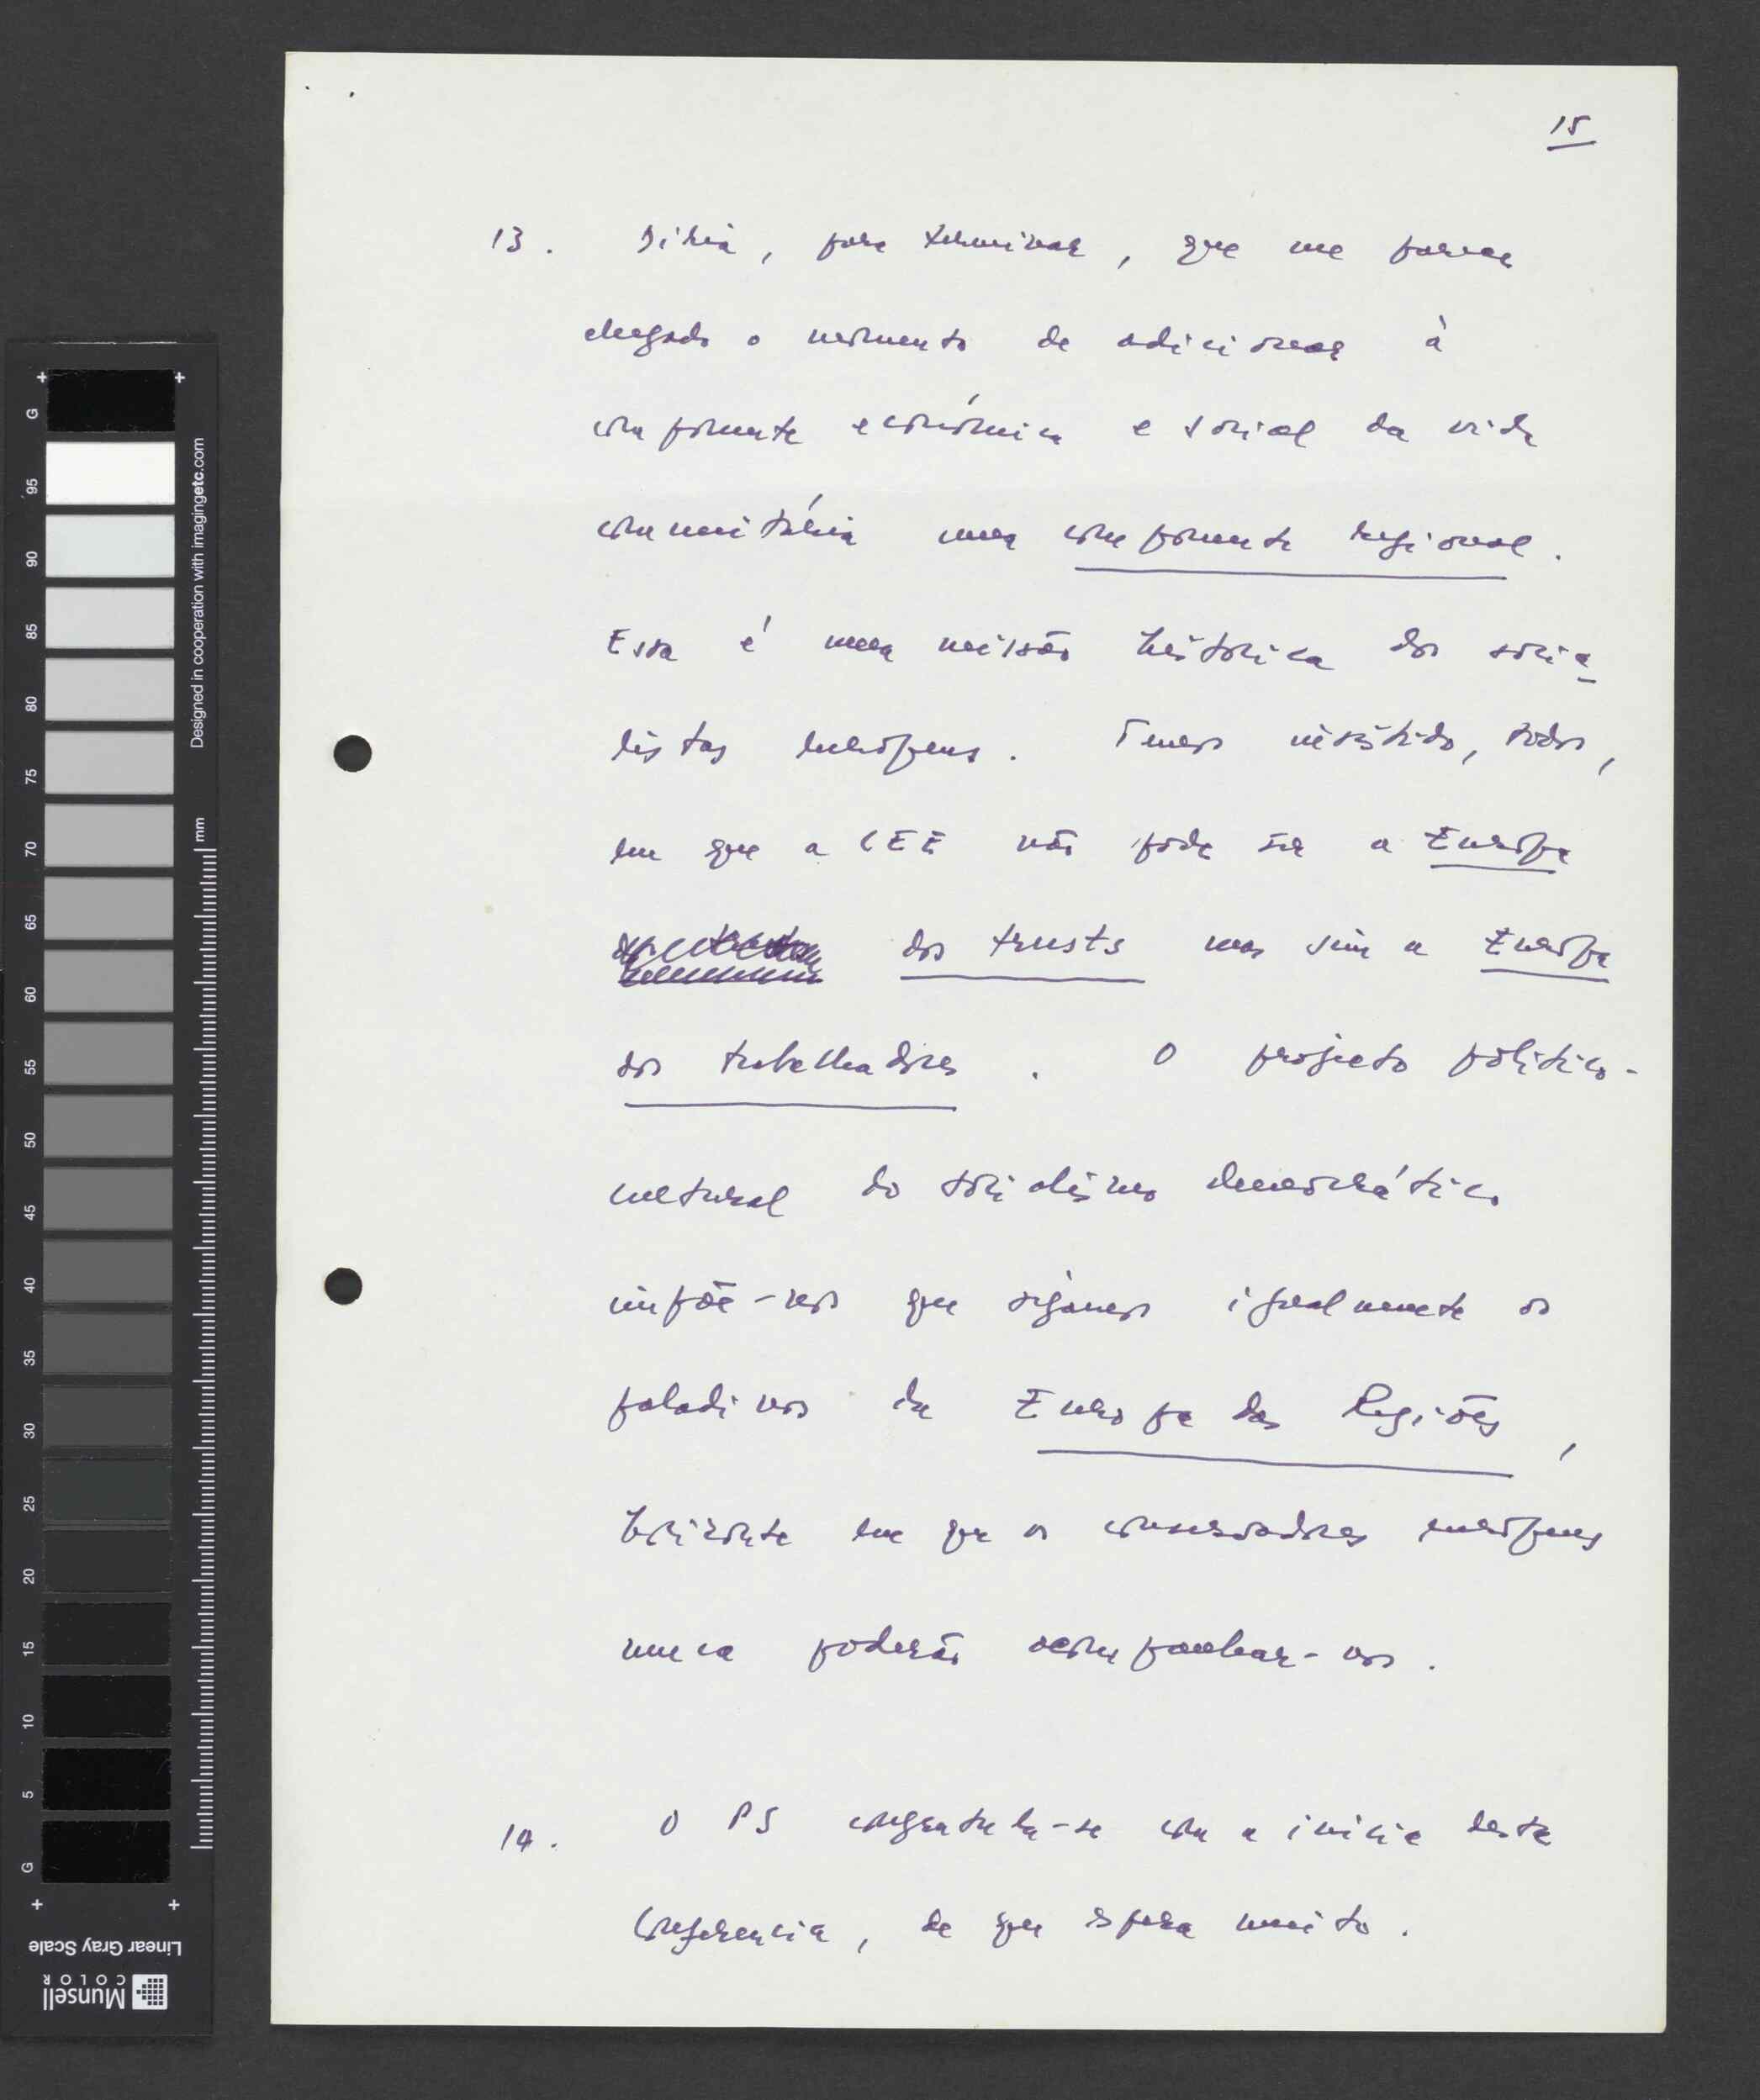 15
13. Diria, para terminar, que me parece
chegado o momento de adicionar à
componente económica e social da vida
comunitária uma componente regional.
Essa é uma missão histórica dos socia
listas europeus. Temos insistido, todos,
em que a CEE não pode ser a Europa
dos trusts mas sim a Europa
dos trabalhadores. O projecto político-
cultural do socialismo democrático
impõe-nos que sejamos igualmente os
paladinos da Europa das Regiões,
horizonte em que os conservadores europeus
nunca poderão acompanhar-nos.
14. O PS congratula-se com a inicia desta
Conferencia, de que espera muito.
G 95 90 85 80 75 70 65 60 55 50 45 40 35 30 25 20 15 10 5 G
Designed in cooperation with imagingetc.com
mm
Linear Gray Scale
Munsell
COLOR